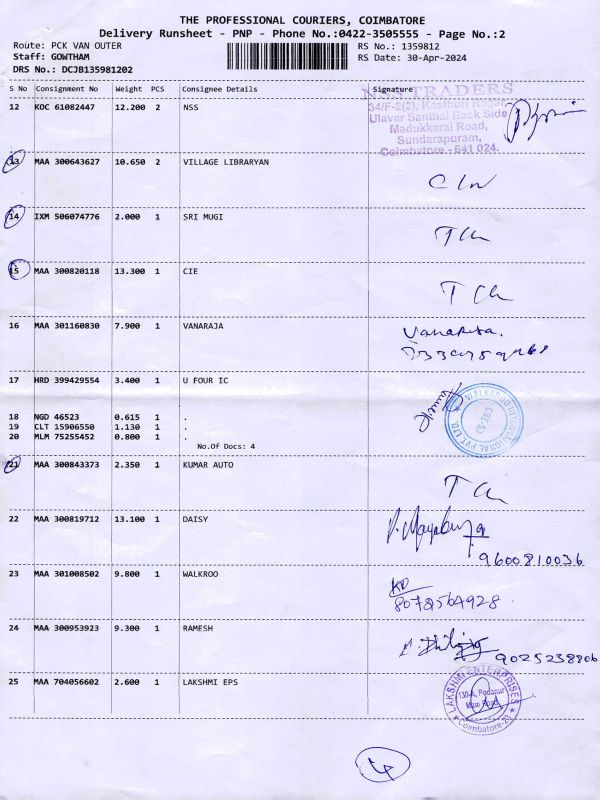 THE PROFESSIONAL COURIERS, COIMBATORE
Delivery Runsheet - PNP - Phone No.:0422-3505555 - Page No.:2
Route: PCK VAN OUTER RS No.: 1359812
Staff: GOWTHAM RS Date: 30-Apr-2024
DRS No.: DCJB135981202
S No Consignment No Weight PCS Consignee Details Signature
12 KOC 61082447 12.200 2 NSS
NSS TRADERS
34/F-2(2), Kasthuri Nagar,
Ulavar Santhai Back Side
Madukkarai Road,
Sundarapuram,
Coimbatore - 641 024.
13 MAA 300643627 10.650 2 VILLAGE LIBRARYAN
14 IXM 506074776 2.000 1 SRI MUGI
15 MAA 300820118 13.300 1 CIE
16 MAA 301160830 7.900 1 VANARAJA
17 HRD 399429554 3.400 1 U FOUR IC
18 NGD 46523 0.615 1 .
19 CLT 15906550 1.130 1 .
20 MLM 75255452 0.800 1 .
No.Of Docs: 4
21 MAA 300843373 2.350 1 KUMAR AUTO
22 MAA 300819712 13.100 1 DAISY
9600810036
23 MAA 301008502 9.800 1 WALKROO
8078564928
24 MAA 300953923 9.300 1 RAMESH
9025238806
25 MAA 704056602 2.600 1 LAKSHMI EPS
LAKSHMI ENTERPRISES
130-A, Podanur
Main Road,
Coimbatore-23